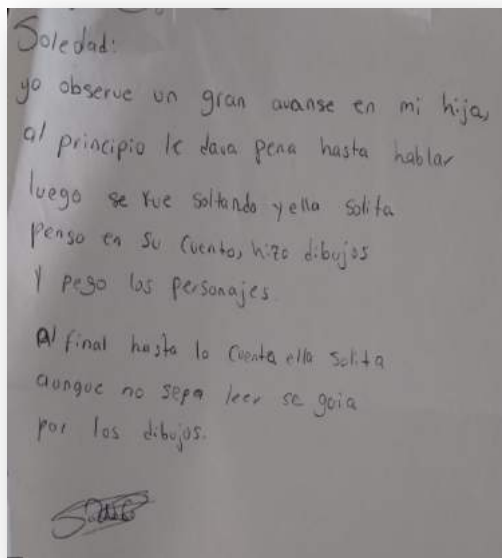 Soledad:
yo observe un gran avanse en mi hija,
al principio le dava pena hasta hablar
luego se fue soltando y ella solita
penso en su cuento, hizo dibujos
y pego los personajes.
Al final hasta lo cuenta ella solita
aunque no sepa leer se goia
por los dibujos.